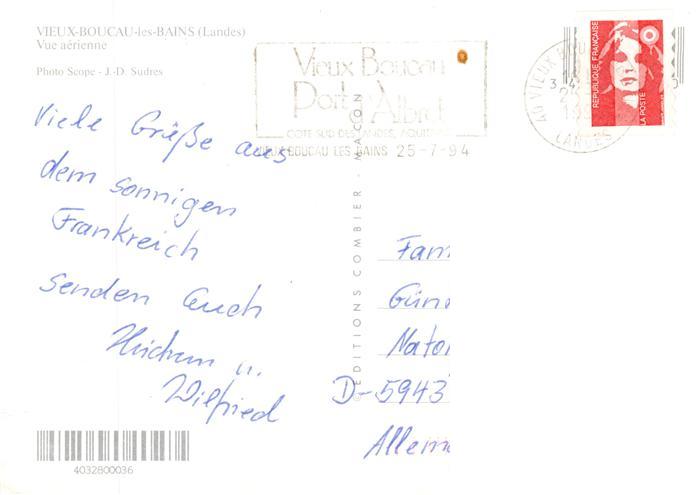 VIEUX-BOUCAU-les-BAINS (Landes)
Vue aérienne
Photo Scope - J.-D. Sudres
Vieux Boucau
Port d'Albret
COTE SUD DES LANDES, AQUITAINE
VIEUX BOUCAU LES BAINS 25-7-94
REPUBLIQUE FRANÇAISE
LA POSTE
LANDES
Viele Grüße aus
dem sonnigen
Frankreich
senden Euch
u.
Wilfried
EDITIONS COMBIER - MACON
Fam
Günn
Nator
D-5943
Allem
4032800036